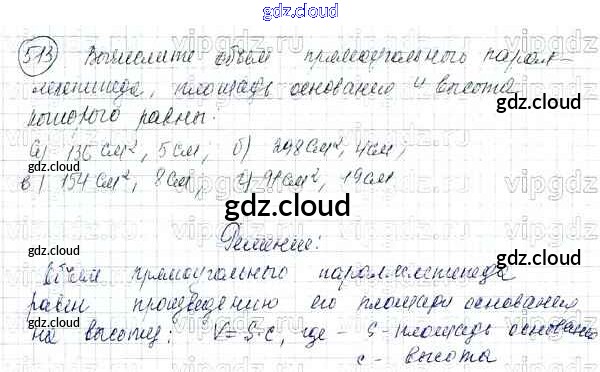 gdz.cloud
513 Вычислите объем прямоугольного парал-
лелепипеда, площадь основания и высота
которого равны:
gdz.cloud
а) 136 см², 5 см; б) 248 см², 4 см;
в) 154 см², 8 см, г) 91 см², 19 см
gdz.cloud
Решение:
Объем прямоугольного параллелепипеда
равен произведению его площади основания
на высоту: V=S·c, где - S-площадь основания
c - высота
gdz.cloud